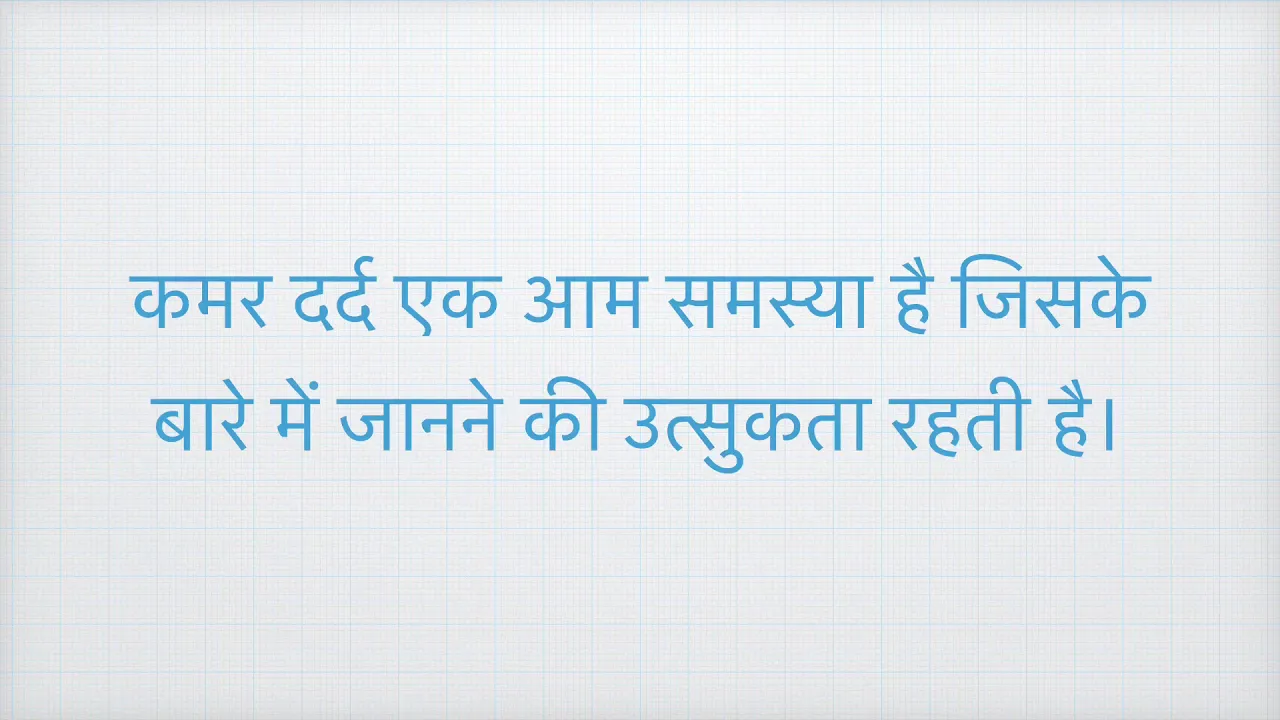 कमर दर्द एक आम समस्या है जिसके
बारे में जानने की उत्सुकता रहती है।